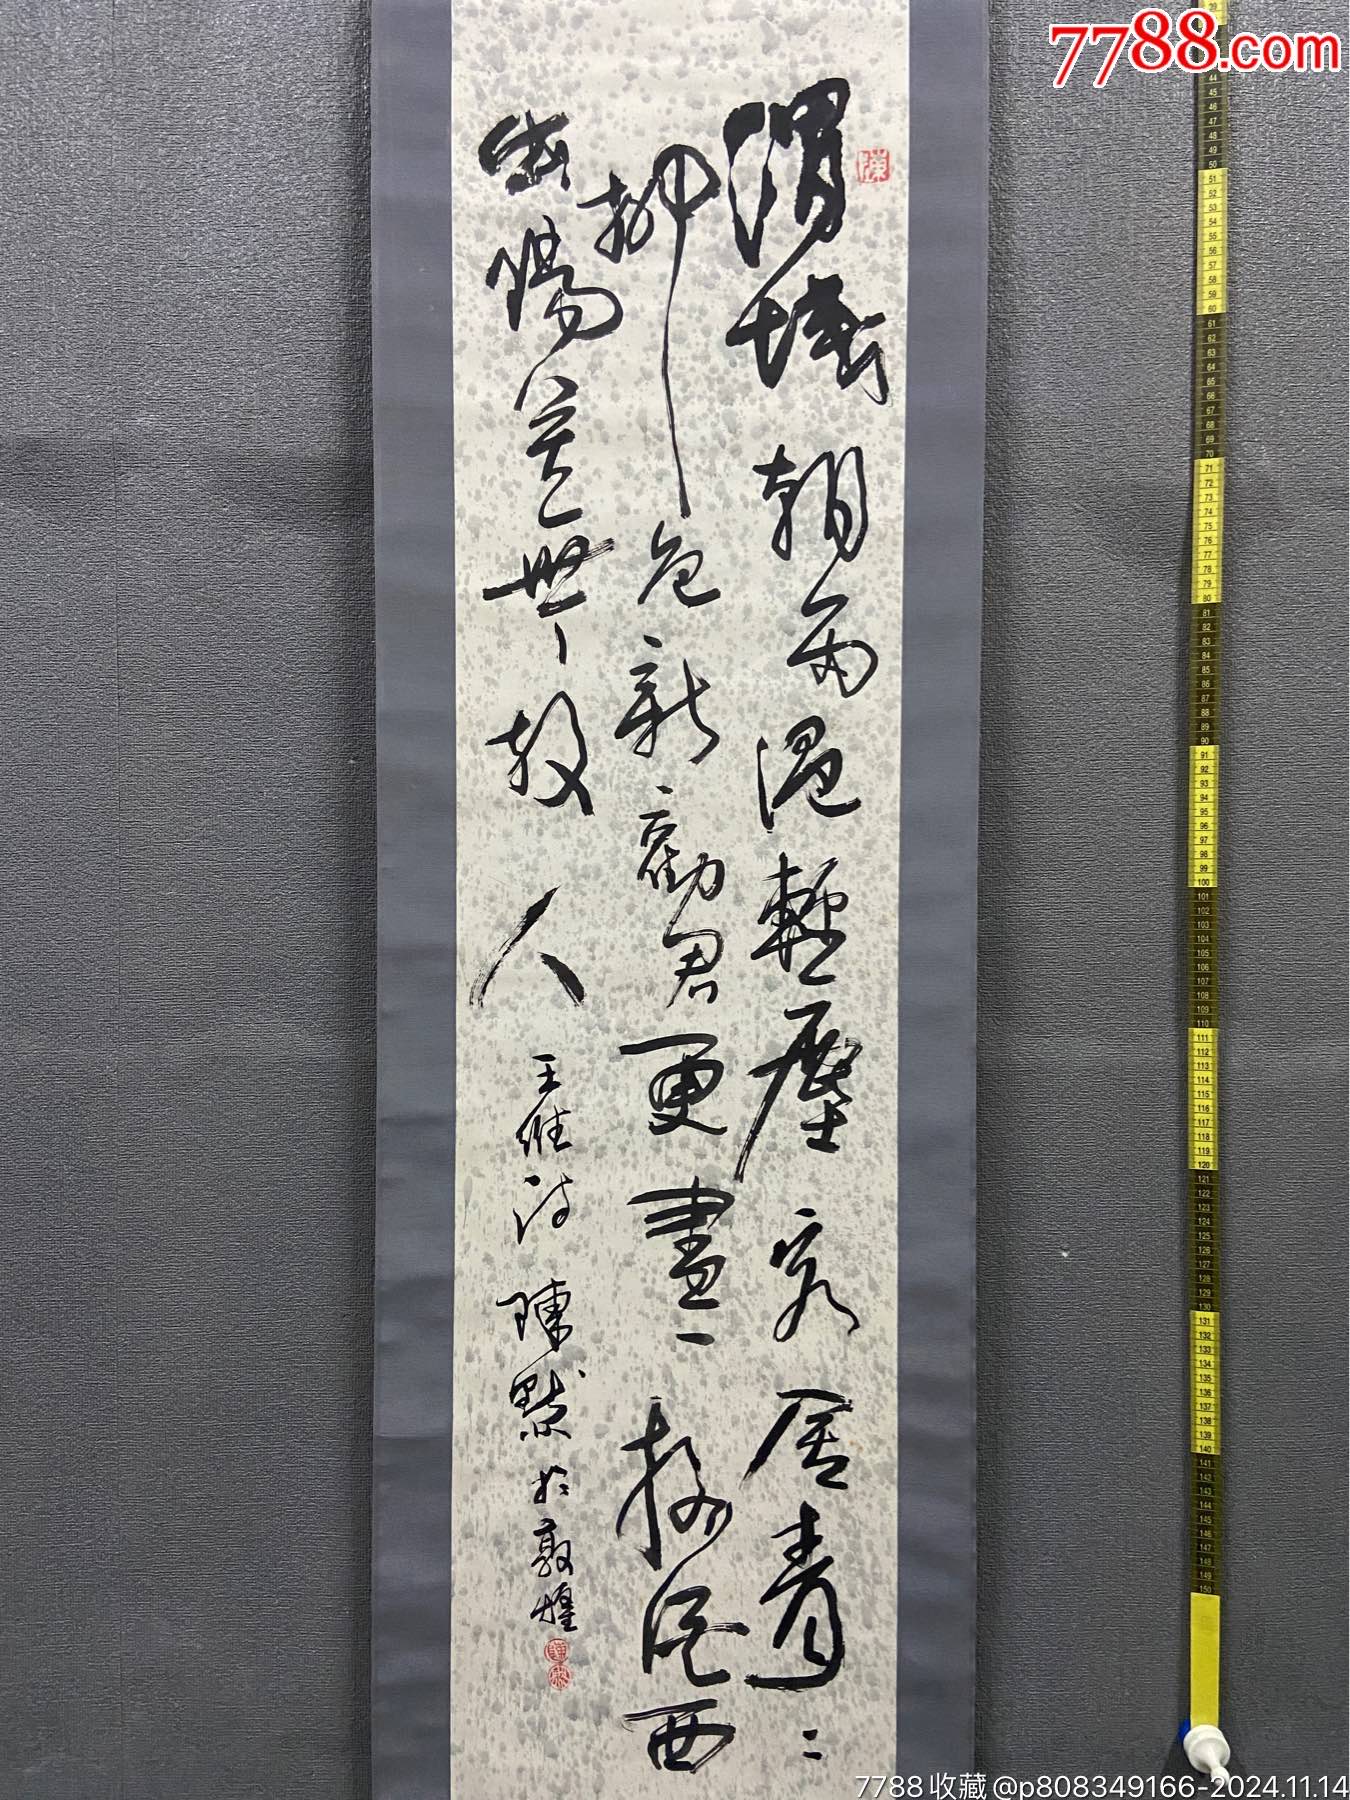 7788.com
陳
渭城朝雨浥輕塵客舍青〻
柳色新勸君更盡一杯酒西
出陽關無故人
王維詩 陳默於敦煌
7788收藏@p808349166-2024.11.14